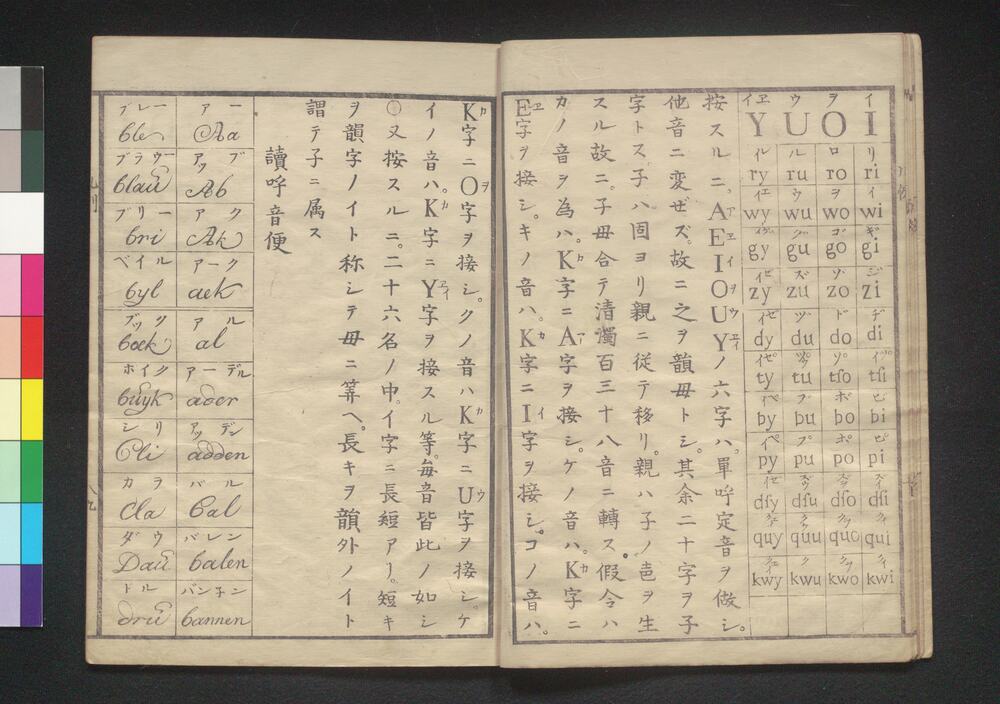 イ I リ ri イ wi ギ gi ジ zi ヂ di tſi ビ bi ピ pi dſi クィ qui クィ kwi
ヲ O ロ ro ヲ wo ゴ go ゾ zo ド do tſo ボ bo ポ po dſo クヲ quo クヲ kwo
ウ U ル ru ウ wu グ gu ズ zu ヅ du tu ブ bu プ pu dſu クウ quu クウ kwu
イヱ Y ry wy gy zy dy ty by py dſy quy kwy
按スルニ、AEIOUYノ六字ハ、單呼定音ヲ做シ。
他音ニ変ゼズ。故ニ之ヲ韻母トシ。其余二十字ヲ子
字トス。子ハ固ヨリ親ニ従テ移リ。親ハ子ノ色ヲ生
スル故ニ。子母合テ清濁百三十八音ニ轉ス。假令ハ
カノ音ヲ為ハ。K字ニA字ヲ接シ。ケノ音ハ。K字ニ
E字ヲ接シ。キノ音ハ。K字ニI字ヲ接シ。コノ音ハ。
K字ニO字ヲ接シ。クノ音ハK字ニU字ヲ接シ。ケ
イノ音ハ。K字ニY字ヲ接スル等。毎音皆此ノ如シ
○又按スルニ。二十六名ノ中。イ字ニ長短アリ。短キ
ヲ韻字ノイト称シテ母ニ筭ヘ。長キヲ韻外ノイト
謂テ子ニ属ス
讀呼音便
アー Aa
アッブ Ab
アク Ak
アーク aek
アル al
アーデル ader
アッデン adden
バル Bal
バレン balen
バンネン bannen
ブレー ble
ブラウー blaŭ
ブリー bri
ベイル byl
ブック boek
ホイク buyk
シリ Cli
カラ Cla
ダウ Daŭ
ドル drŭ